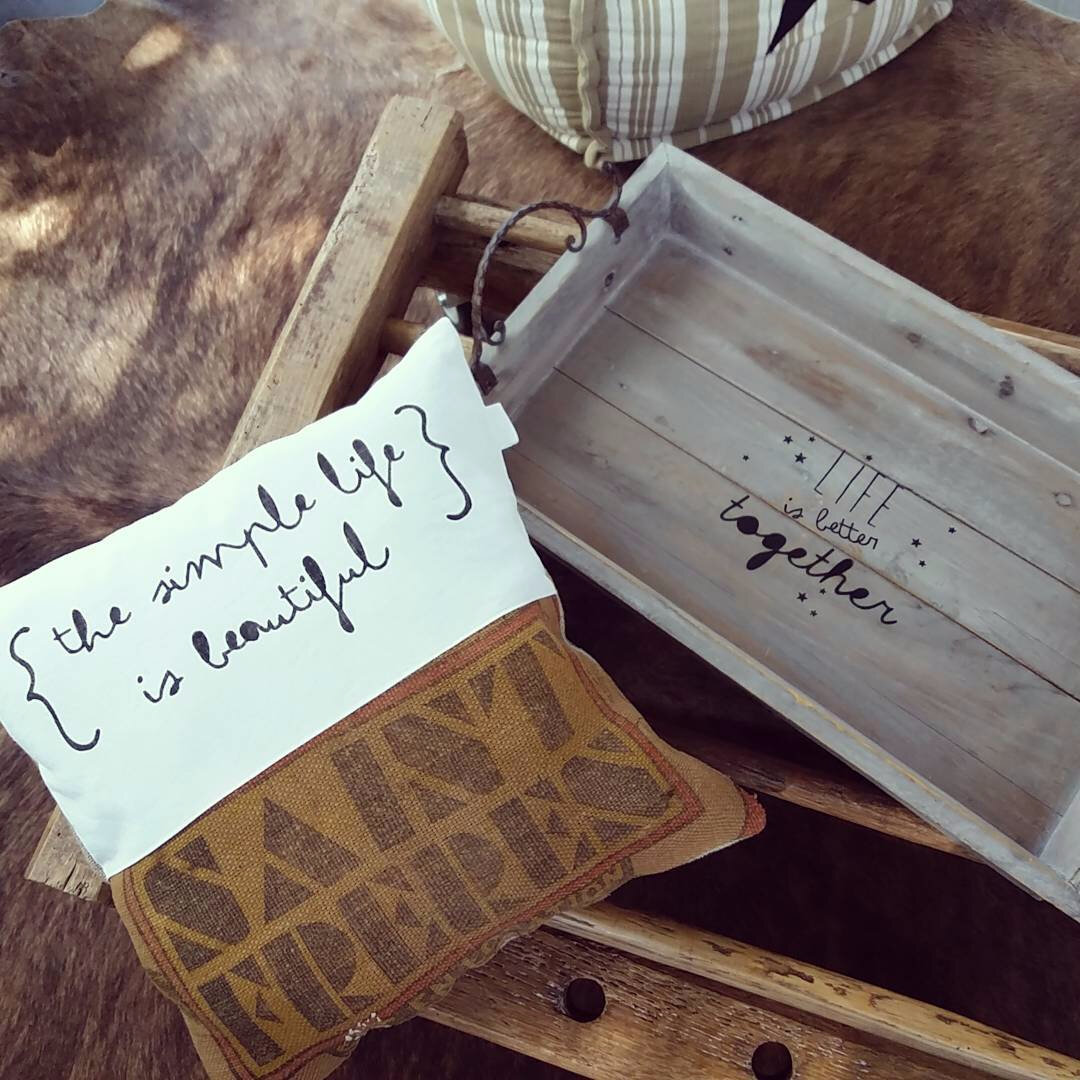 { the simple life }
is beautiful
SAINT
FRERES
LIFE
is better
together